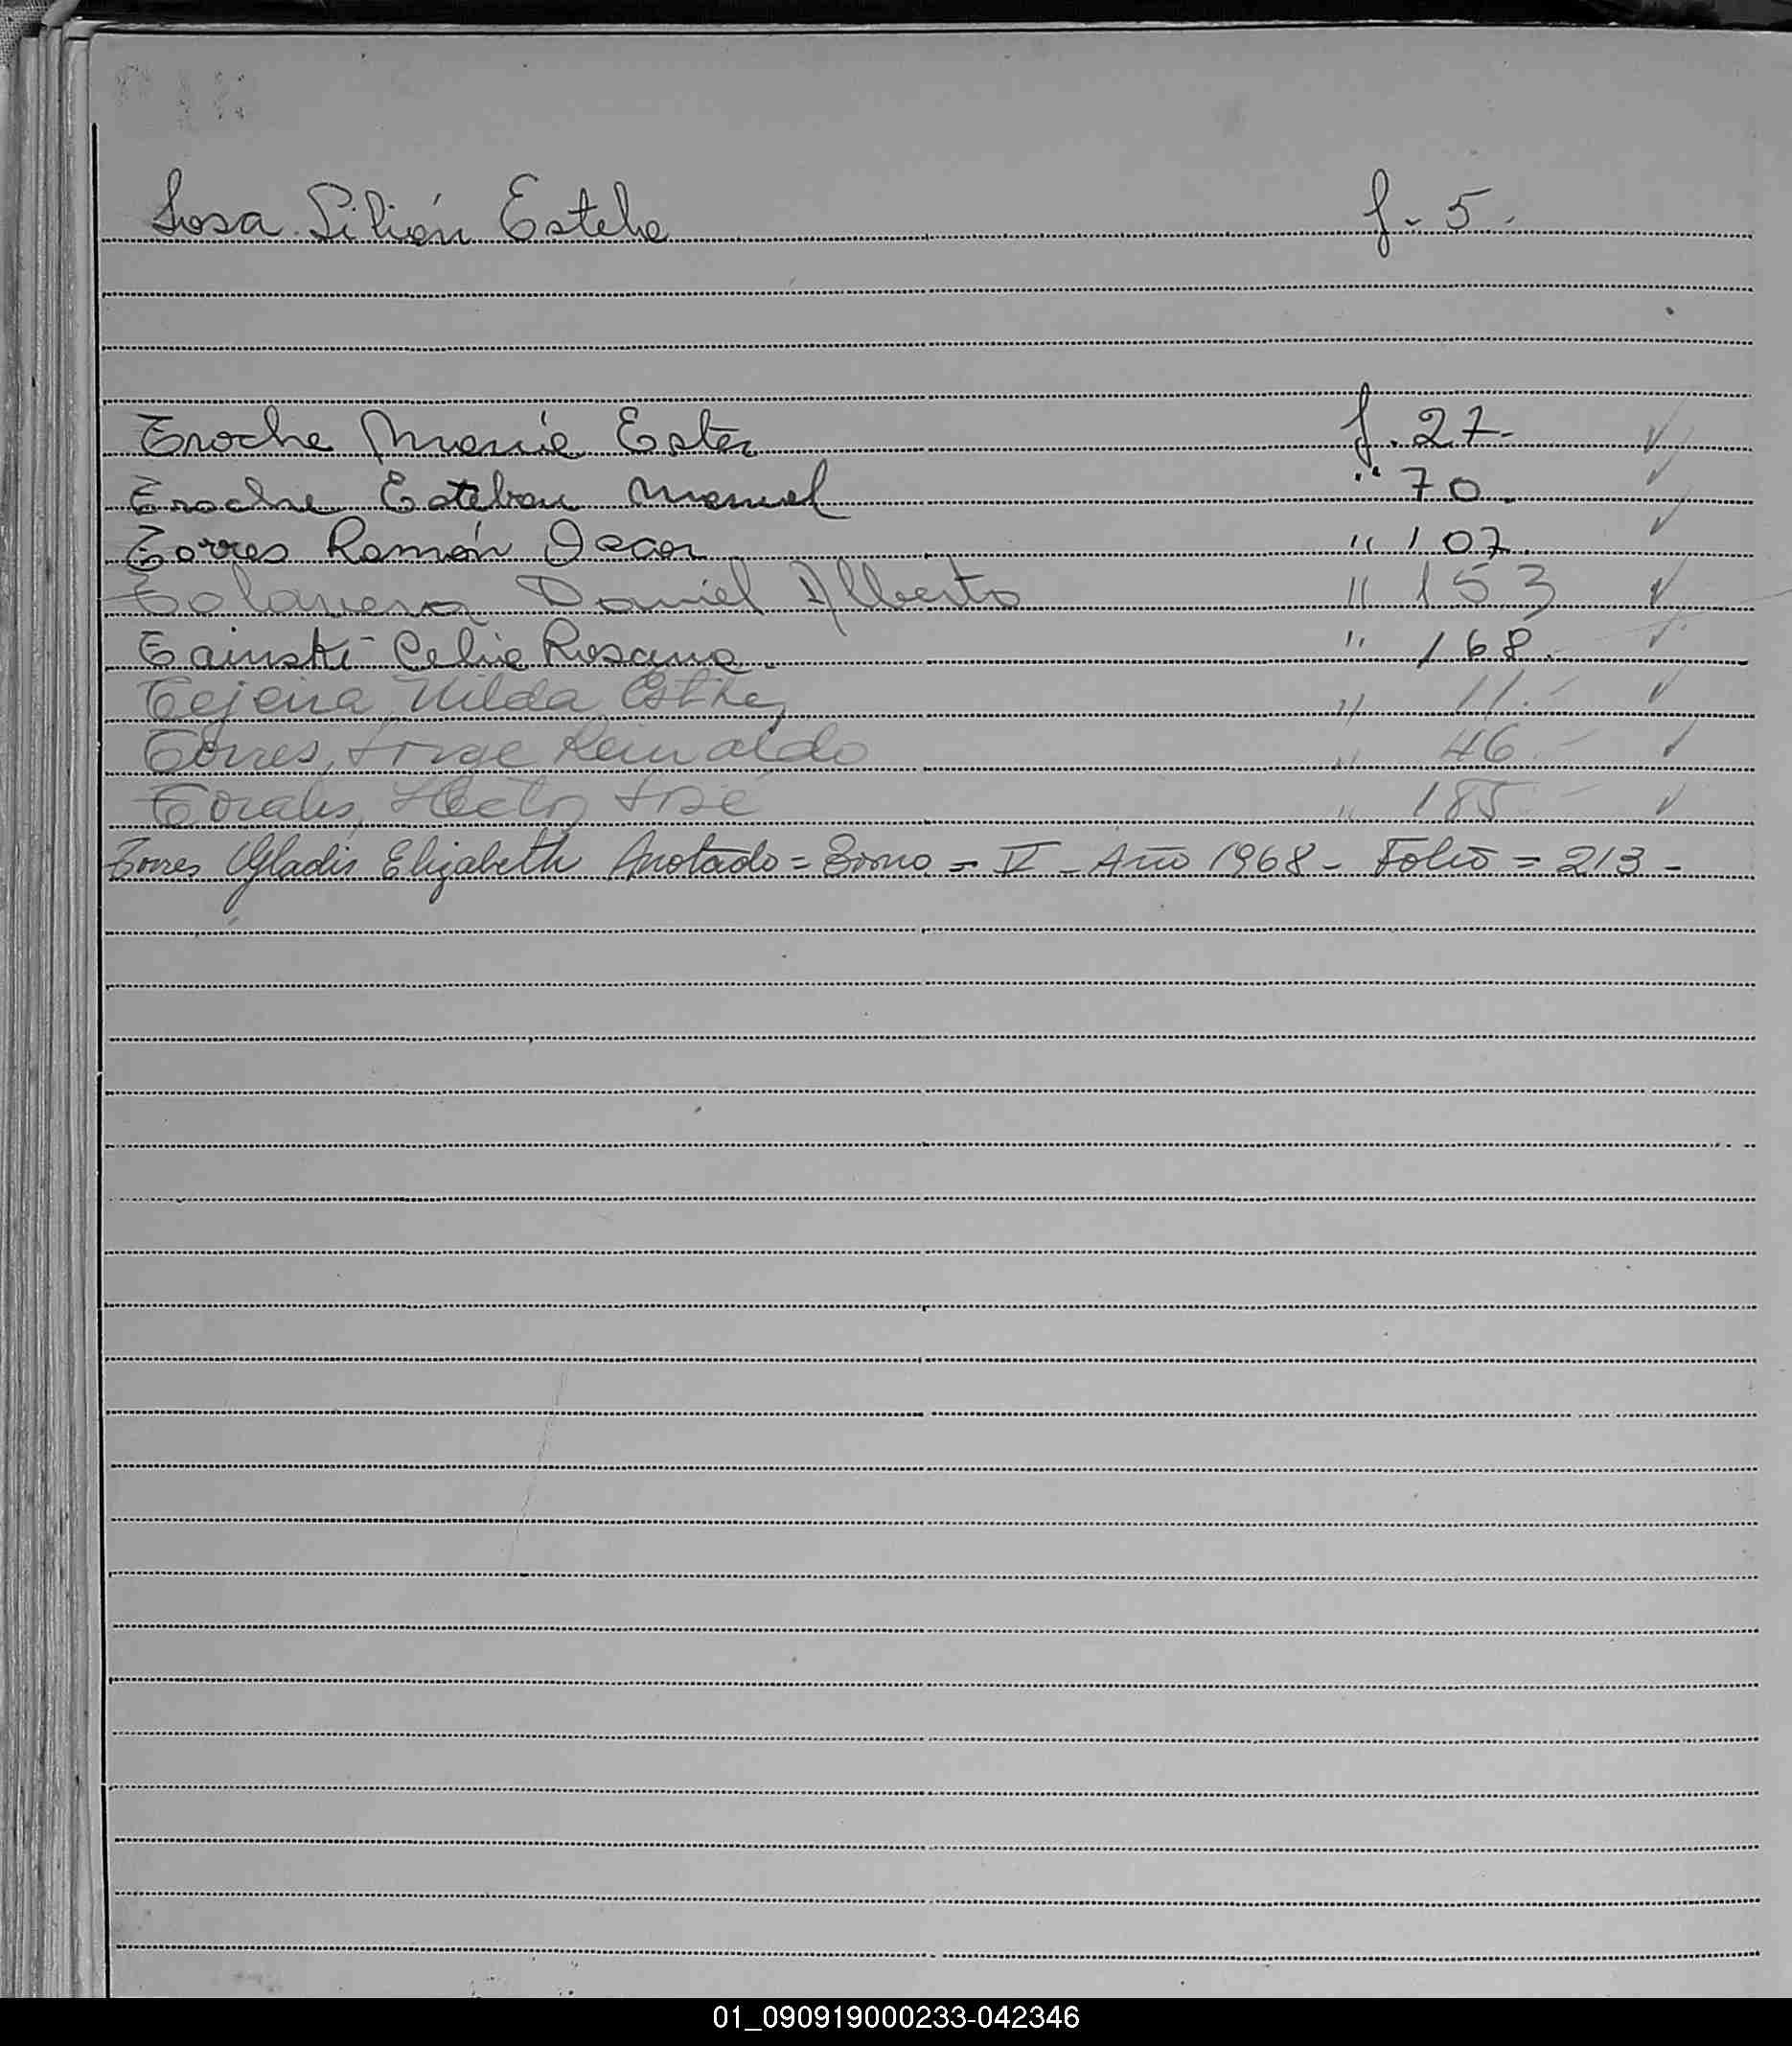 Sosa Lilián Estela f. 5.
Troche María Ester f. 27.
Troche Esteban Manuel " 70.
Torres Ramón Oscar " 107.
Talavera Daniel Alberto " 153
Tainski Celia Rosana. " 168.
Tejeira, Nilda Esther " 11.
Torres, Jorge Reinaldo " 46
Torales, Hector José " 185
Torres Gladis Elizabeth Anotado = Tomo = V - Año 1968 - Folio = 213 -
01_090919000233-042346